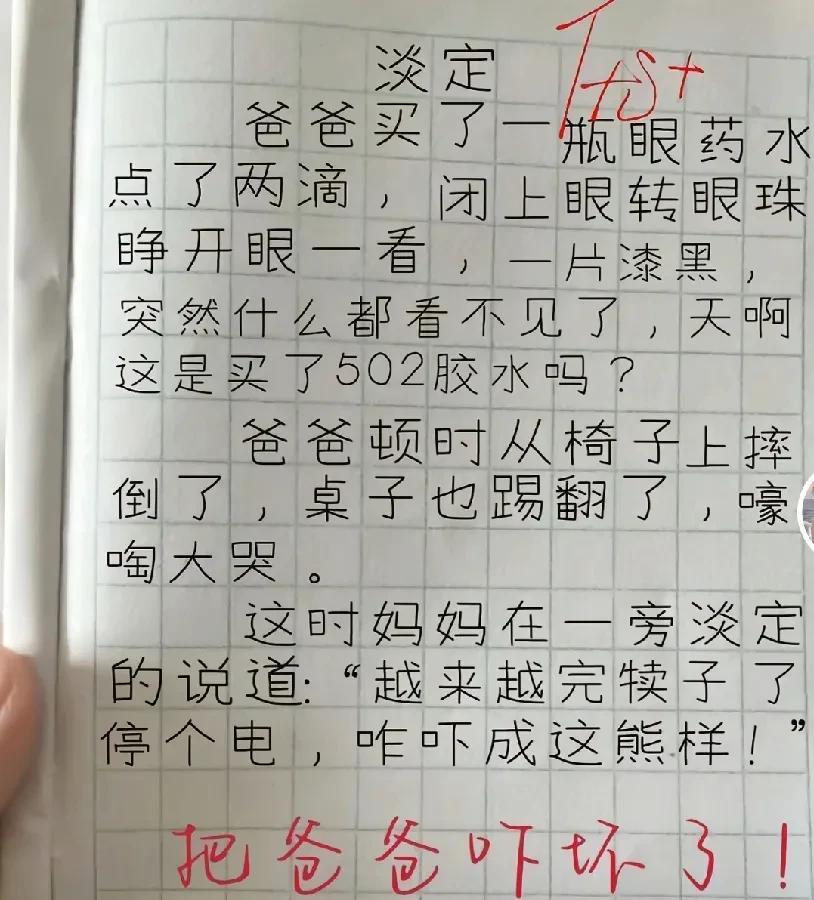 淡定
爸爸买了一瓶眼药水
点了两滴，闭上眼转眼珠
睁开眼一看，一片漆黑，
突然什么都看不见了，天啊
这是买了502胶水吗？
爸爸顿时从椅子上摔
倒了，桌子也踢翻了，嚎
啕大哭。
这时妈妈在一旁淡定
的说道:“越来越完犊子了
停个电，咋吓成这熊样！”
把爸爸吓坏了！